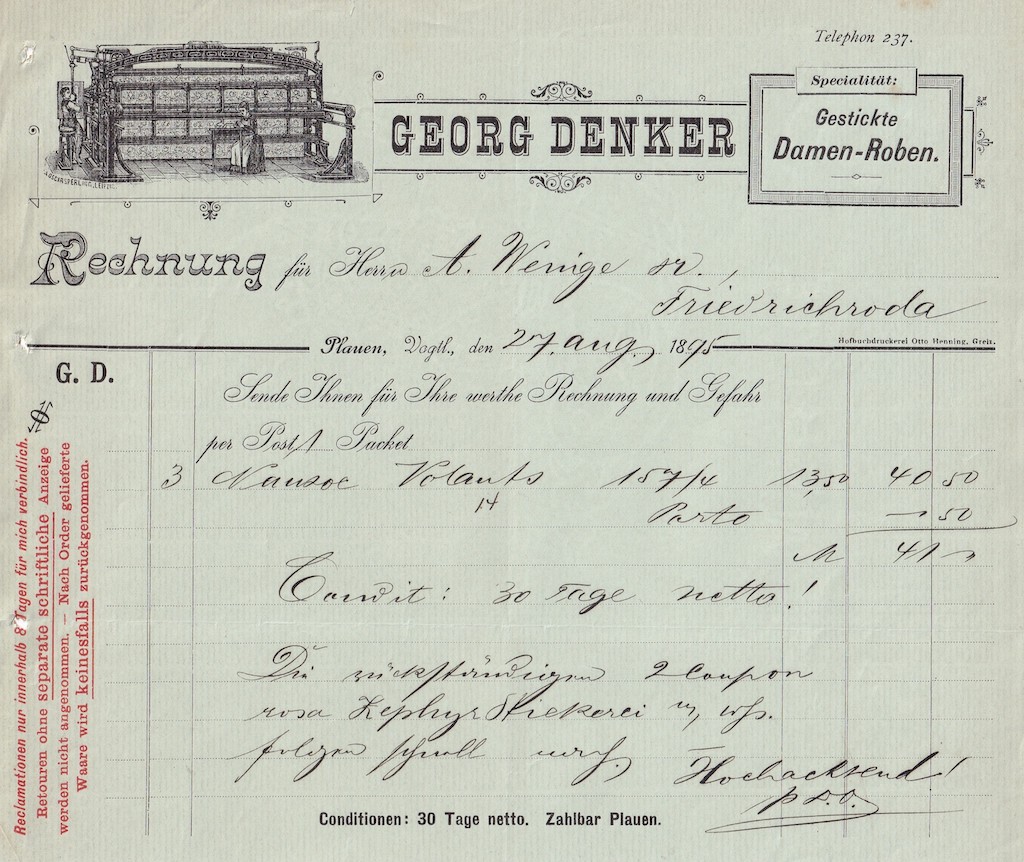 Telephon 237.
GEORG DENKER
Specialität:
Gestickte
Damen-Roben.
Rechnung für Herrn A. Wenige sr.,
Friedrichroda
Plauen, Vogtl., den 27. Aug. 1895
Hofbuchdruckerei Otto Henning, Greiz.
G. D.
Sende Ihnen für Ihre werthe Rechnung und Gefahr
per Post 1 Packet
3 Nansoc Volants 157/4 13,50 40 50
14
Porto — 50
M 41 "
Condit: 30 Tage netto!
Die rückständigen 2 Coupon
rosa Zephyr Stickerei
folgen schnell nach.
Hochachtend!
Conditionen: 30 Tage netto. Zahlbar Plauen.
Reclamationen nur innerhalb 8 Tagen für mich verbindlich.
Retouren ohne separate schriftliche Anzeige
werden nicht angenommen. — Nach Order gelieferte
Waare wird keinesfalls zurückgenommen.